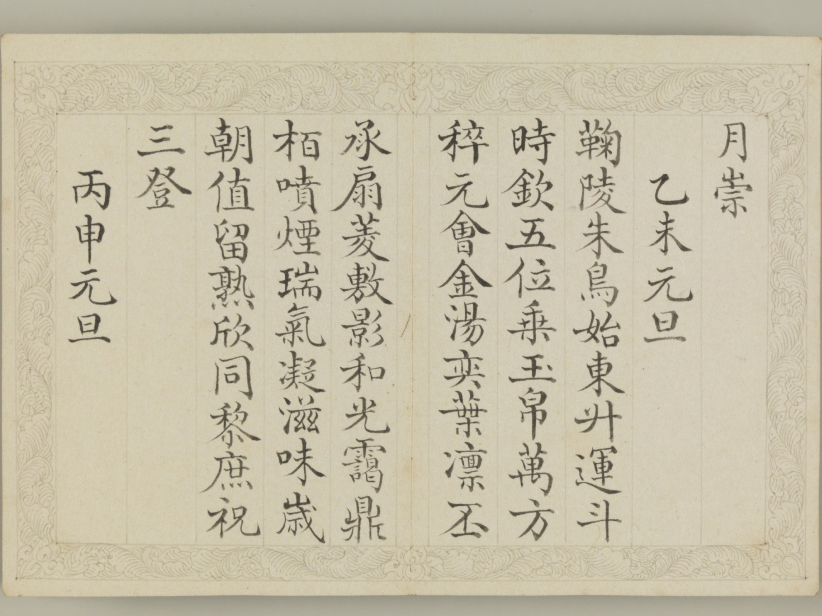 月崇
乙未元旦
鞠陵朱鳥始東升運斗
時欽五位乗玉帛萬方
稡元會金湯奕葉凛丕
承扇菱敷影和光靄鼎
栢噴煙瑞氣凝滋味歳
朝值留熟欣同黎庶祝
三登
丙申元旦